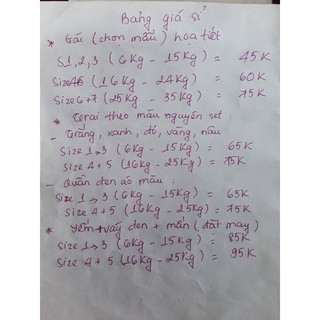 Bảng giá sỉ
* Gái (chọn mẫu) họa tiết
S1,2,3 (6Kg - 15Kg) = 45K
Size45 (16Kg - 24Kg) = 60K
Size6+7 (25Kg - 35Kg) = 75K
* Trai theo mầu nguyên set :
- Trắng, xanh, đỏ, vàng, nâu
Size 1→3 (6Kg - 15Kg) = 65K
Size 4+5 (16Kg - 25Kg) = 75K
- Quần đen áo màu :
Size 1→3 (6Kg - 15Kg) = 65K
Size 4+5 (16Kg - 25Kg) = 75K
* Yếm + váy đen + mấn (đắt may)
Size 1→3 (6Kg - 15Kg) = 85K
Size 4+5 (16Kg - 25Kg) = 95K